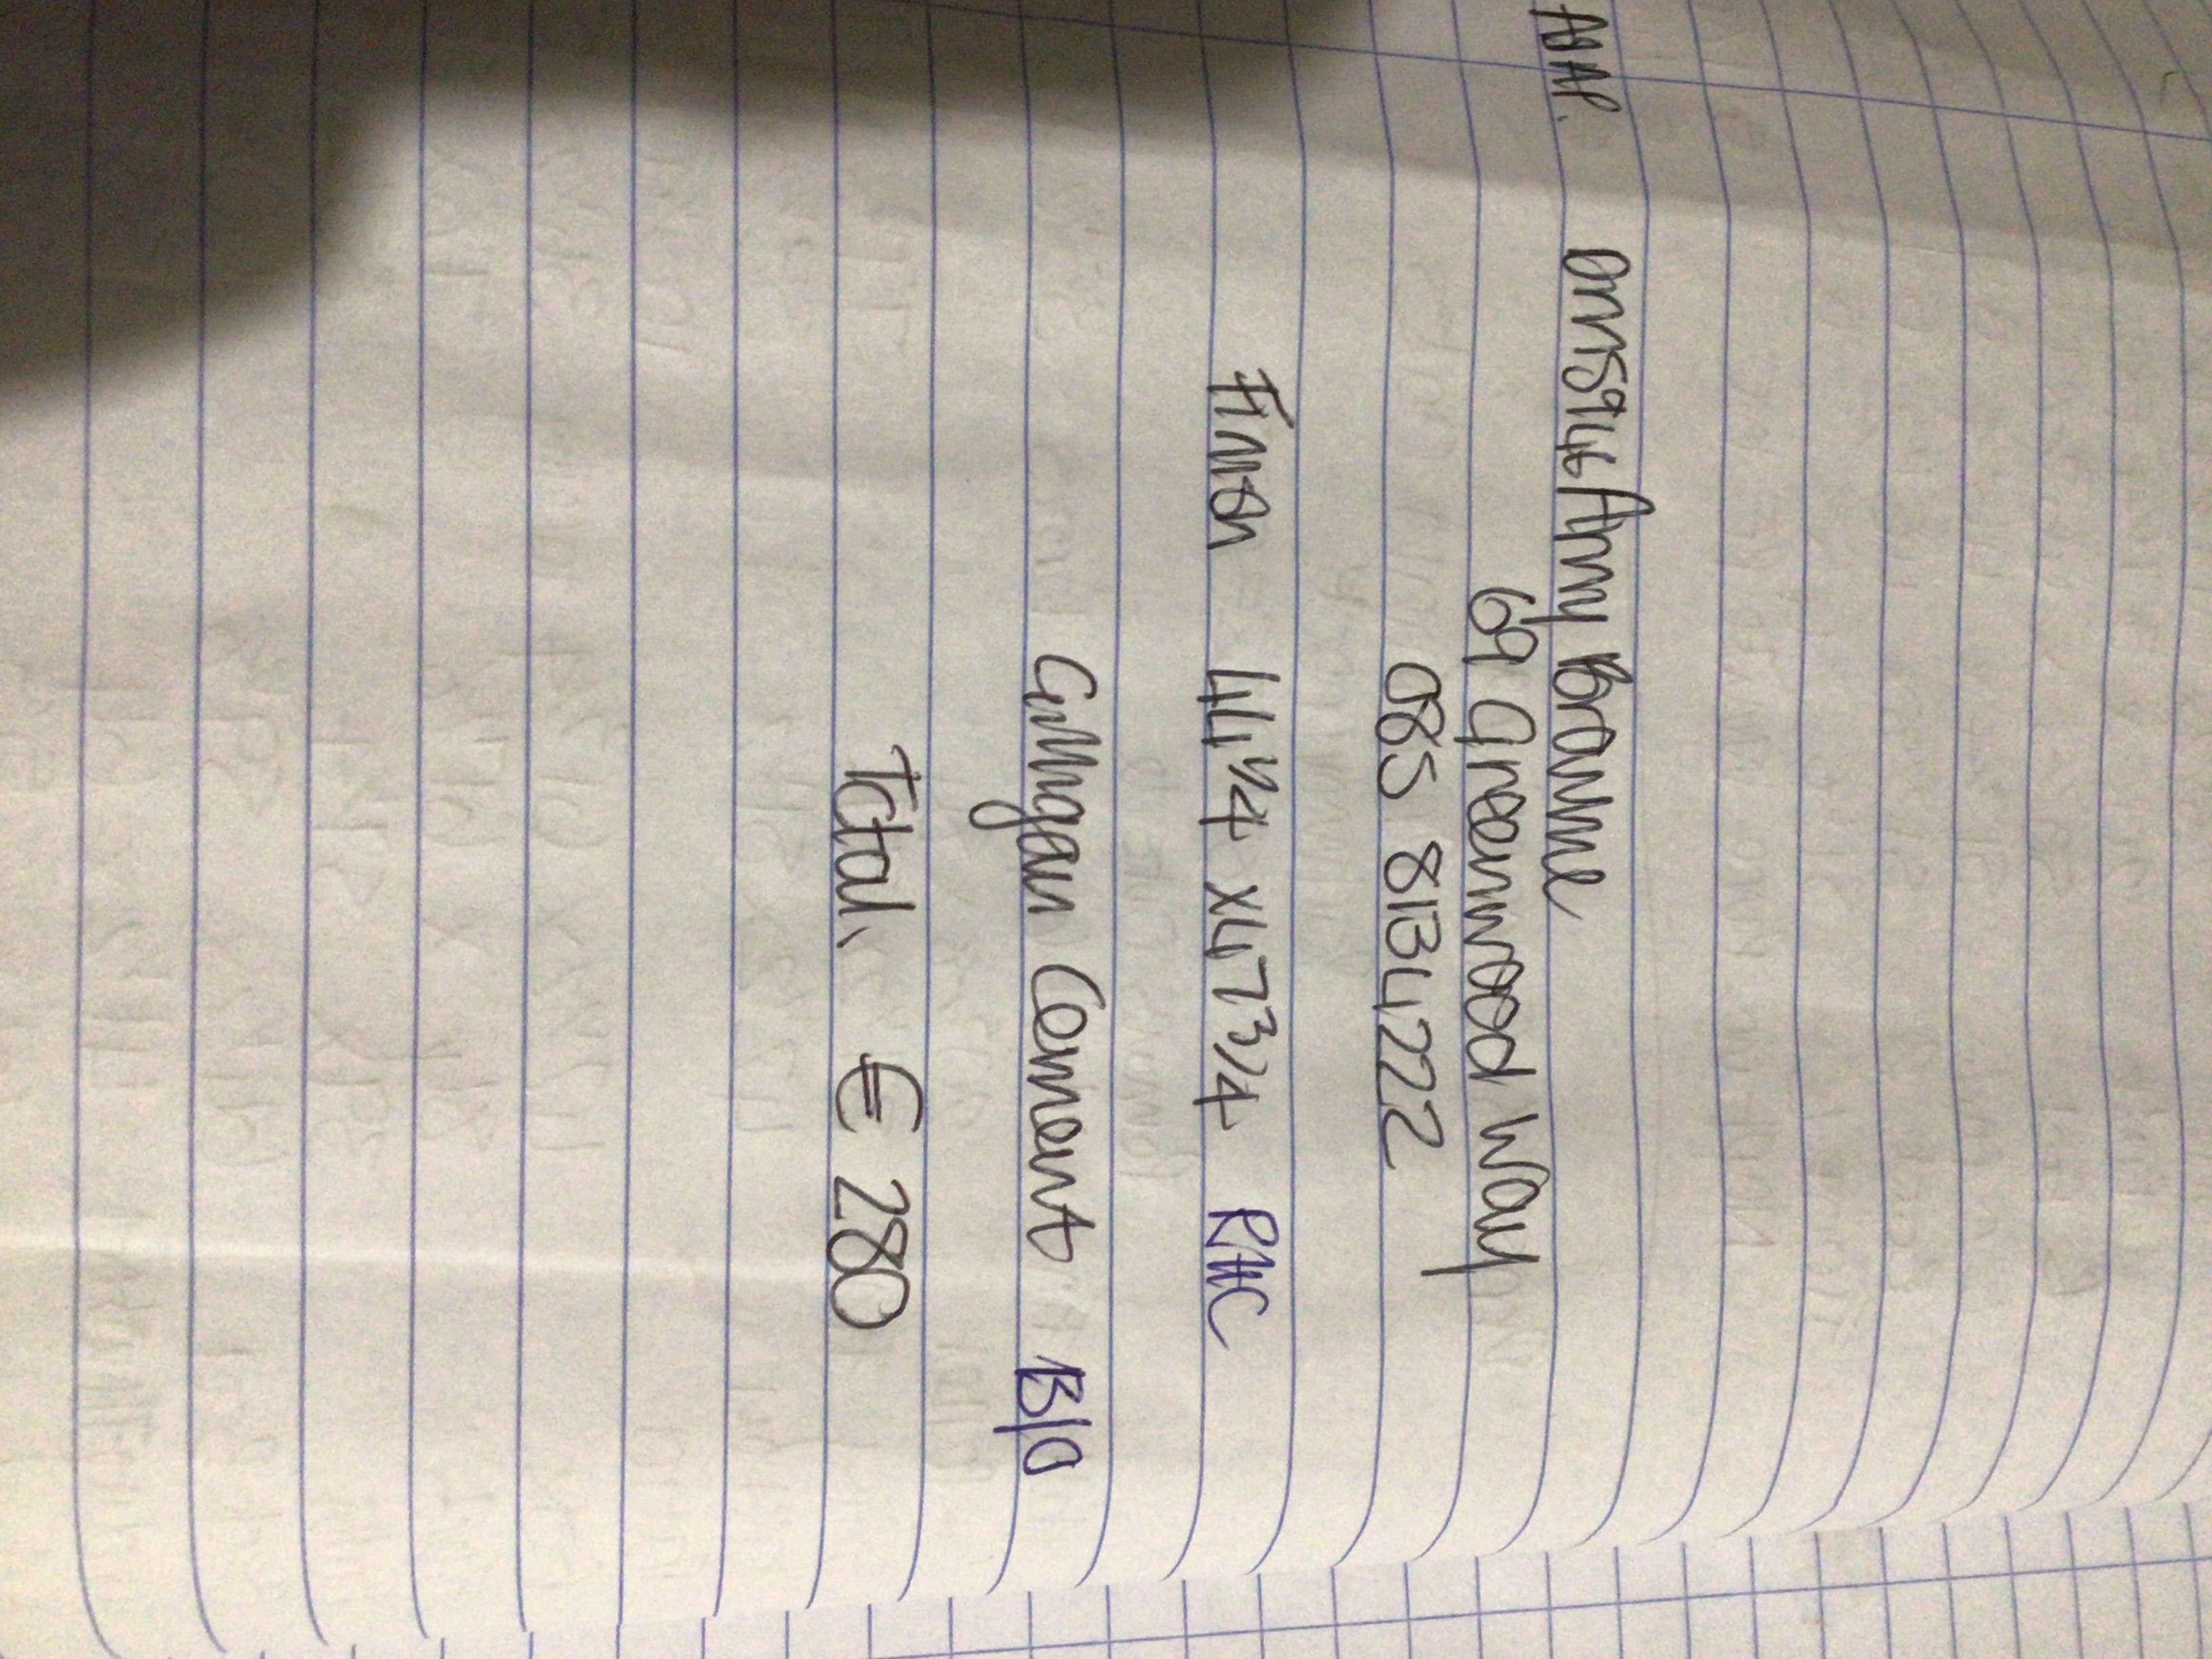 ASAP. OM15946 Amy Browne
69 Greenwood Way
085 8134222
44 1/4 x 47 3/4 RHC
Gilligan Cement B/O
Total. € 280